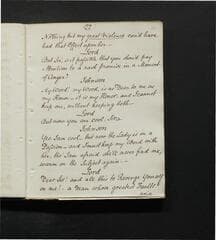 Nothing but my great Violence could have
had that Effect upon her—
Lord
But Sir, is it possible that you should pay
Attention to a rash promise in a Moment
of Anger?
Johnson
My Word, my Lord, is as Dear to me as
my Honor — it is my Honor, and I cannot
keep one, without keeping both.
Lord
But now you are cool, Sir.
Johnson
Yes I am cool — but now the Lady is in a
Passion — and I must keep my Word with
her, for I am afraid she'll never find me
warm on the Subject again —
Lord
Dear Sir! and all this to Revenge yourself
on me! — a Man whose greatest Faults